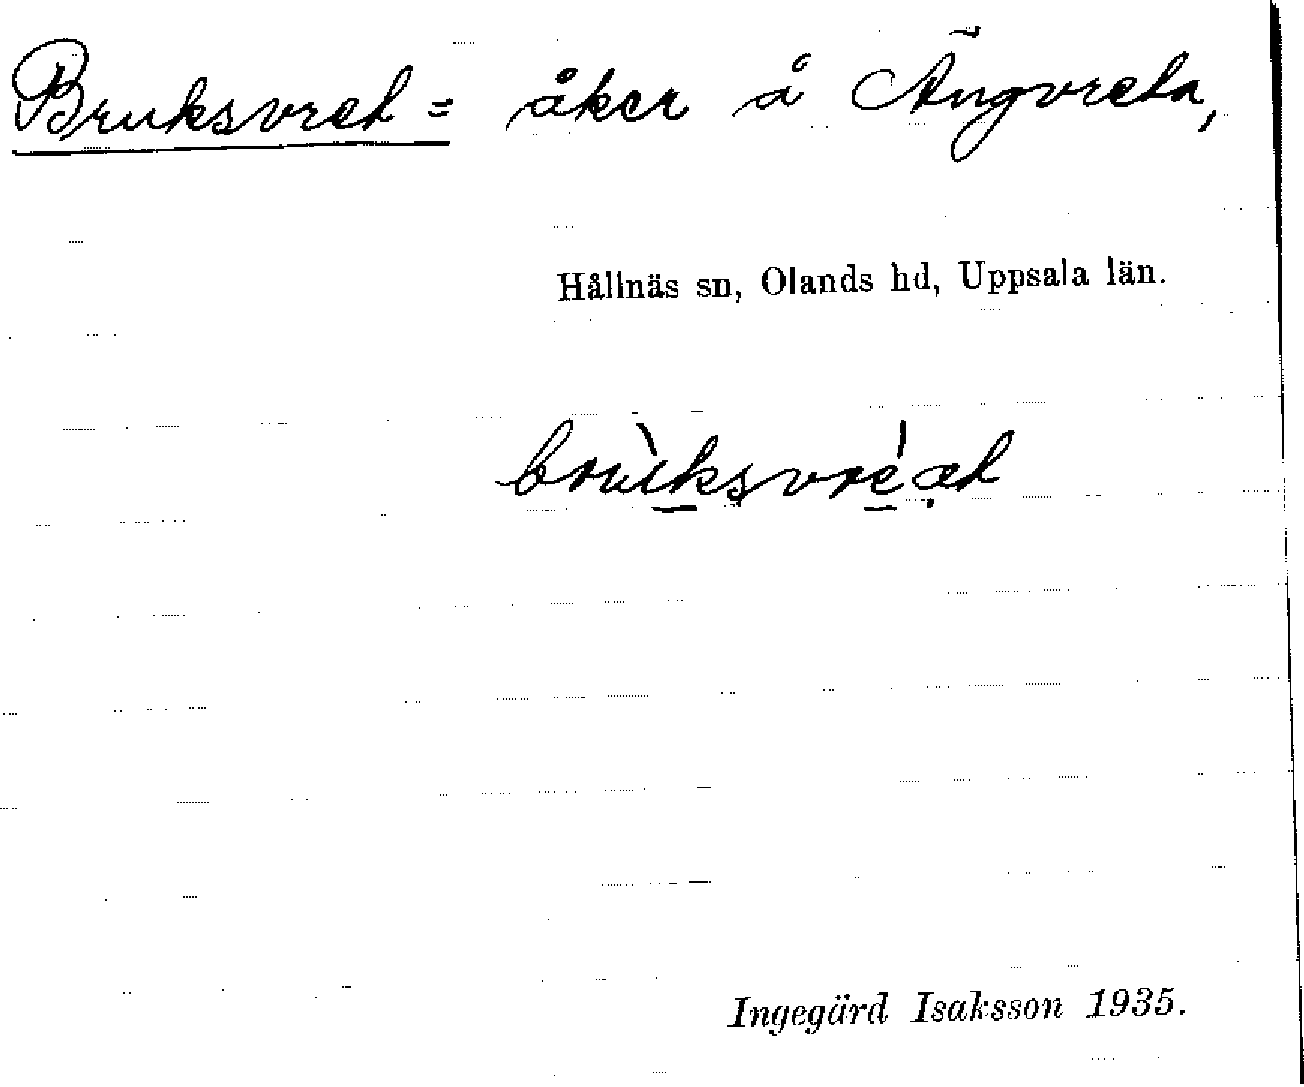 Bruksvret = åker å Ängvreta,
Hållnäs sn, Olands hd, Uppsala län.
brùksvréæt
Ingegärd Isaksson 1935.